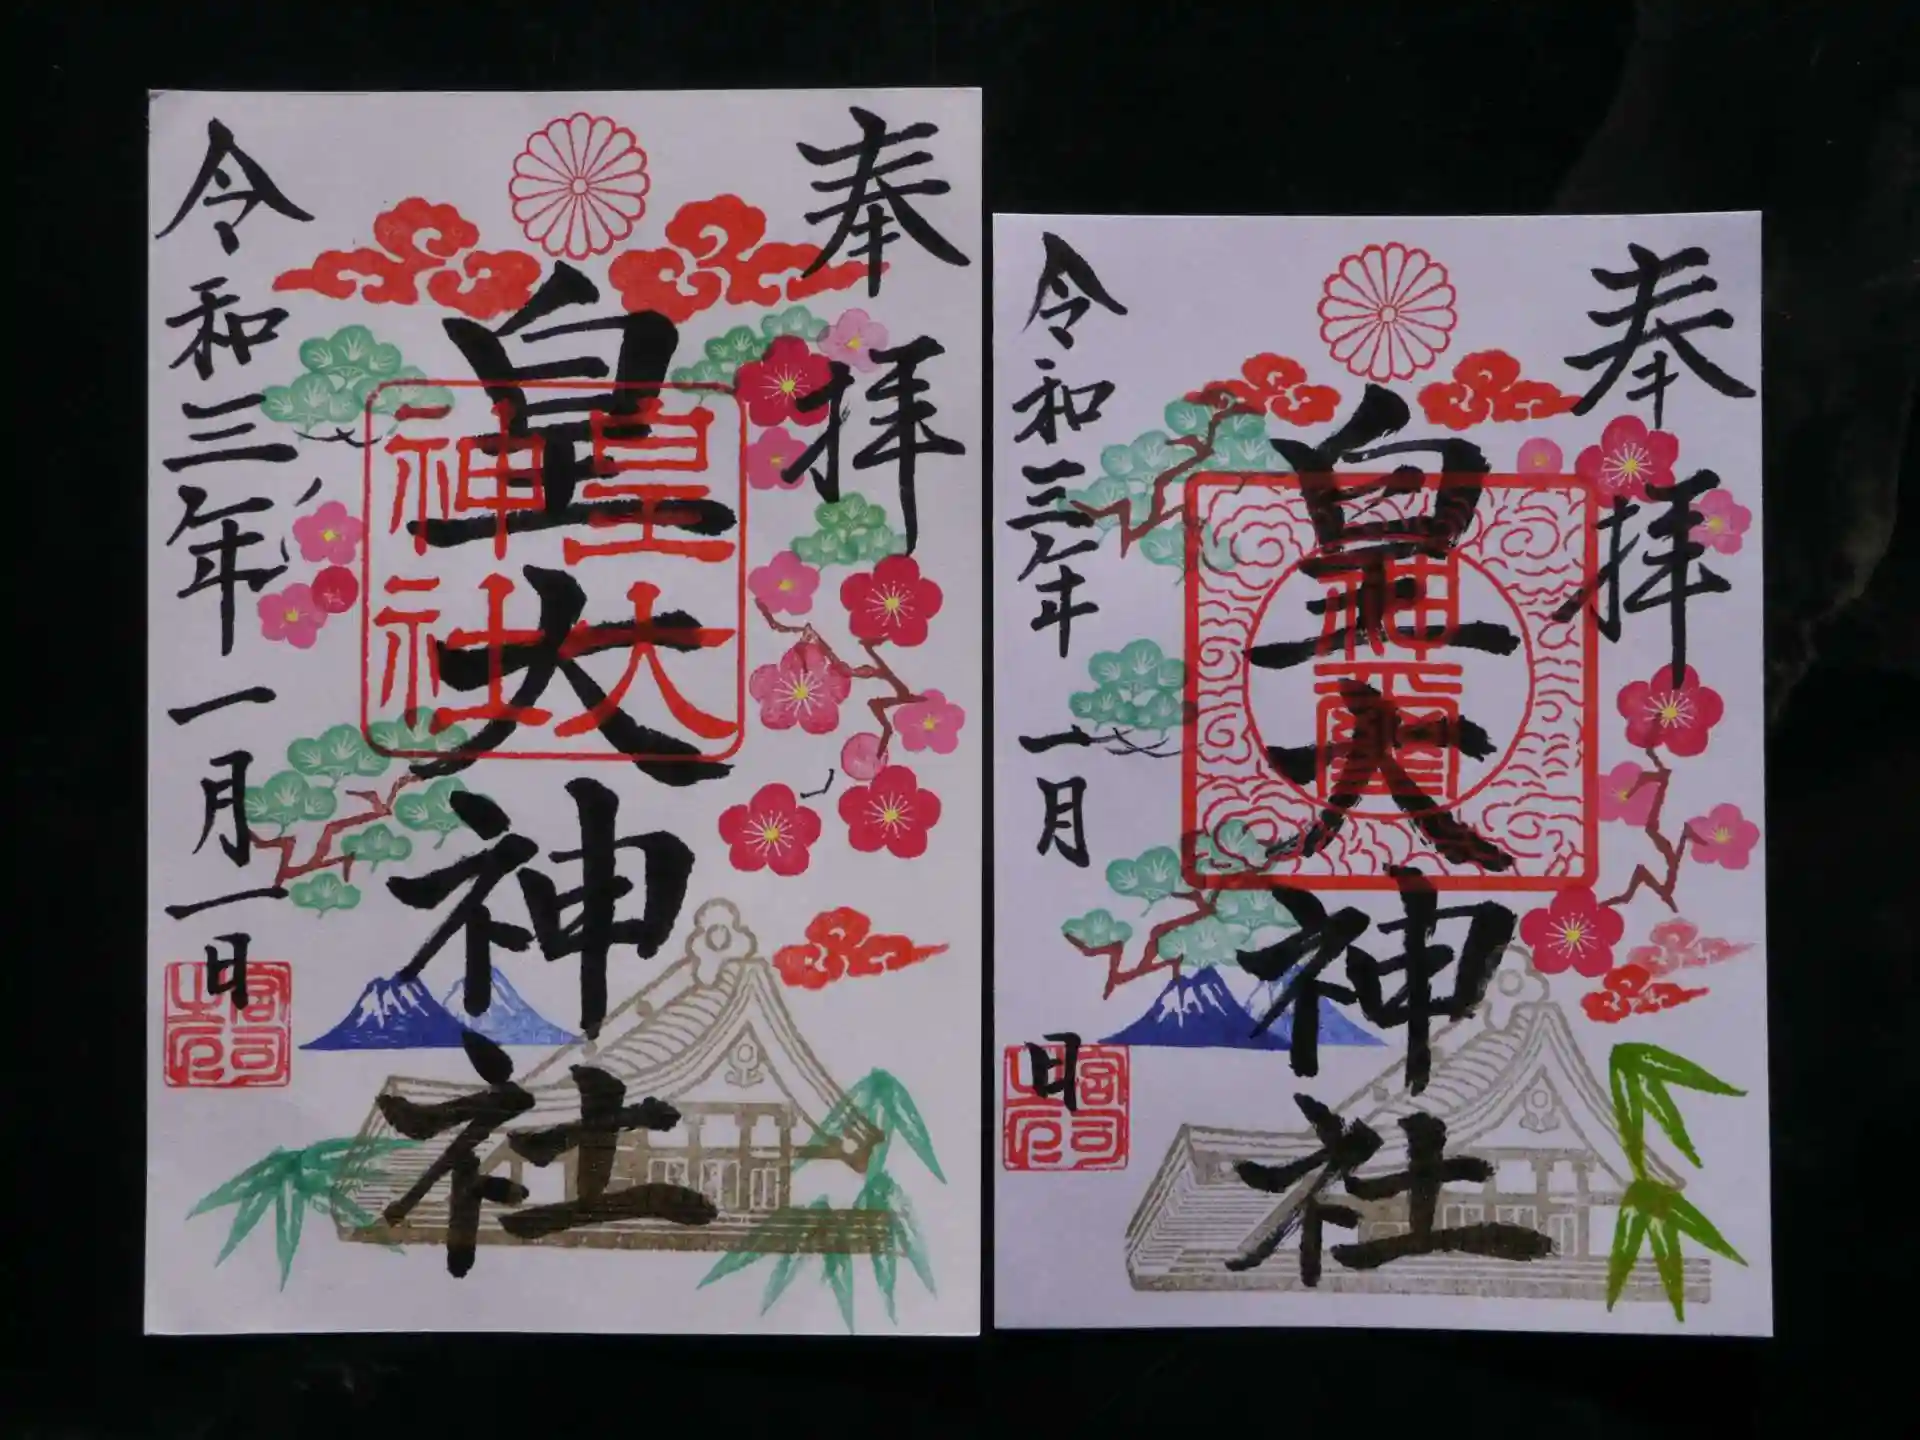 奉拝
皇大神社
皇大
神社
令和三年一月一日
宮司
之印
奉拝
皇大神社
神璽
令和三年一月　日
宮司
之印